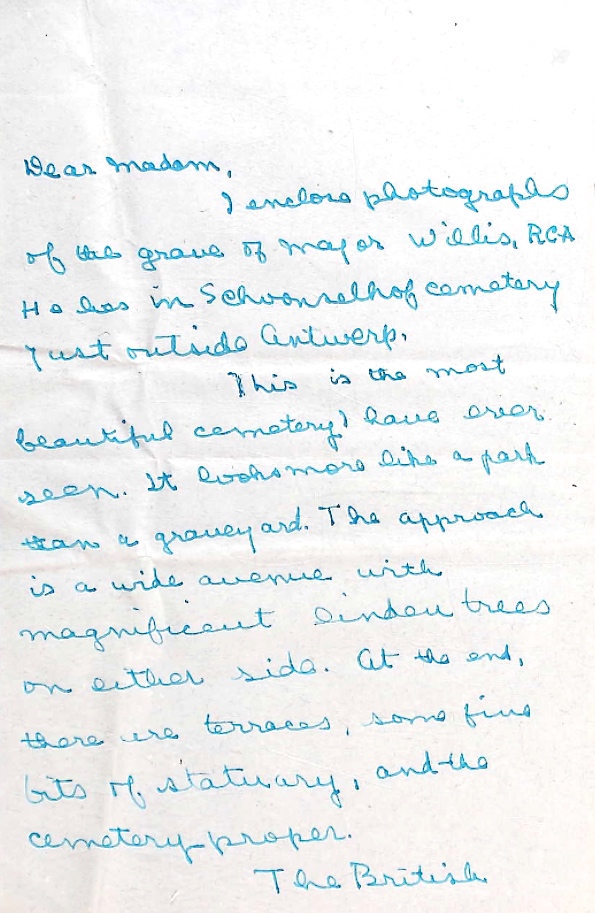 Dear Madam,
I enclose photographs
of the grave of Major Willis, RCA
He lies in Schoonselhof cemetery
just outside Antwerp.
This is the most
beautiful cemetery I have ever
seen. It looks more like a park
than a graveyard. The approach
is a wide avenue with
magnificent linden trees
on either side. At the end,
there are terraces, some fine
bits of statuary, and the
cemetery proper.
The British